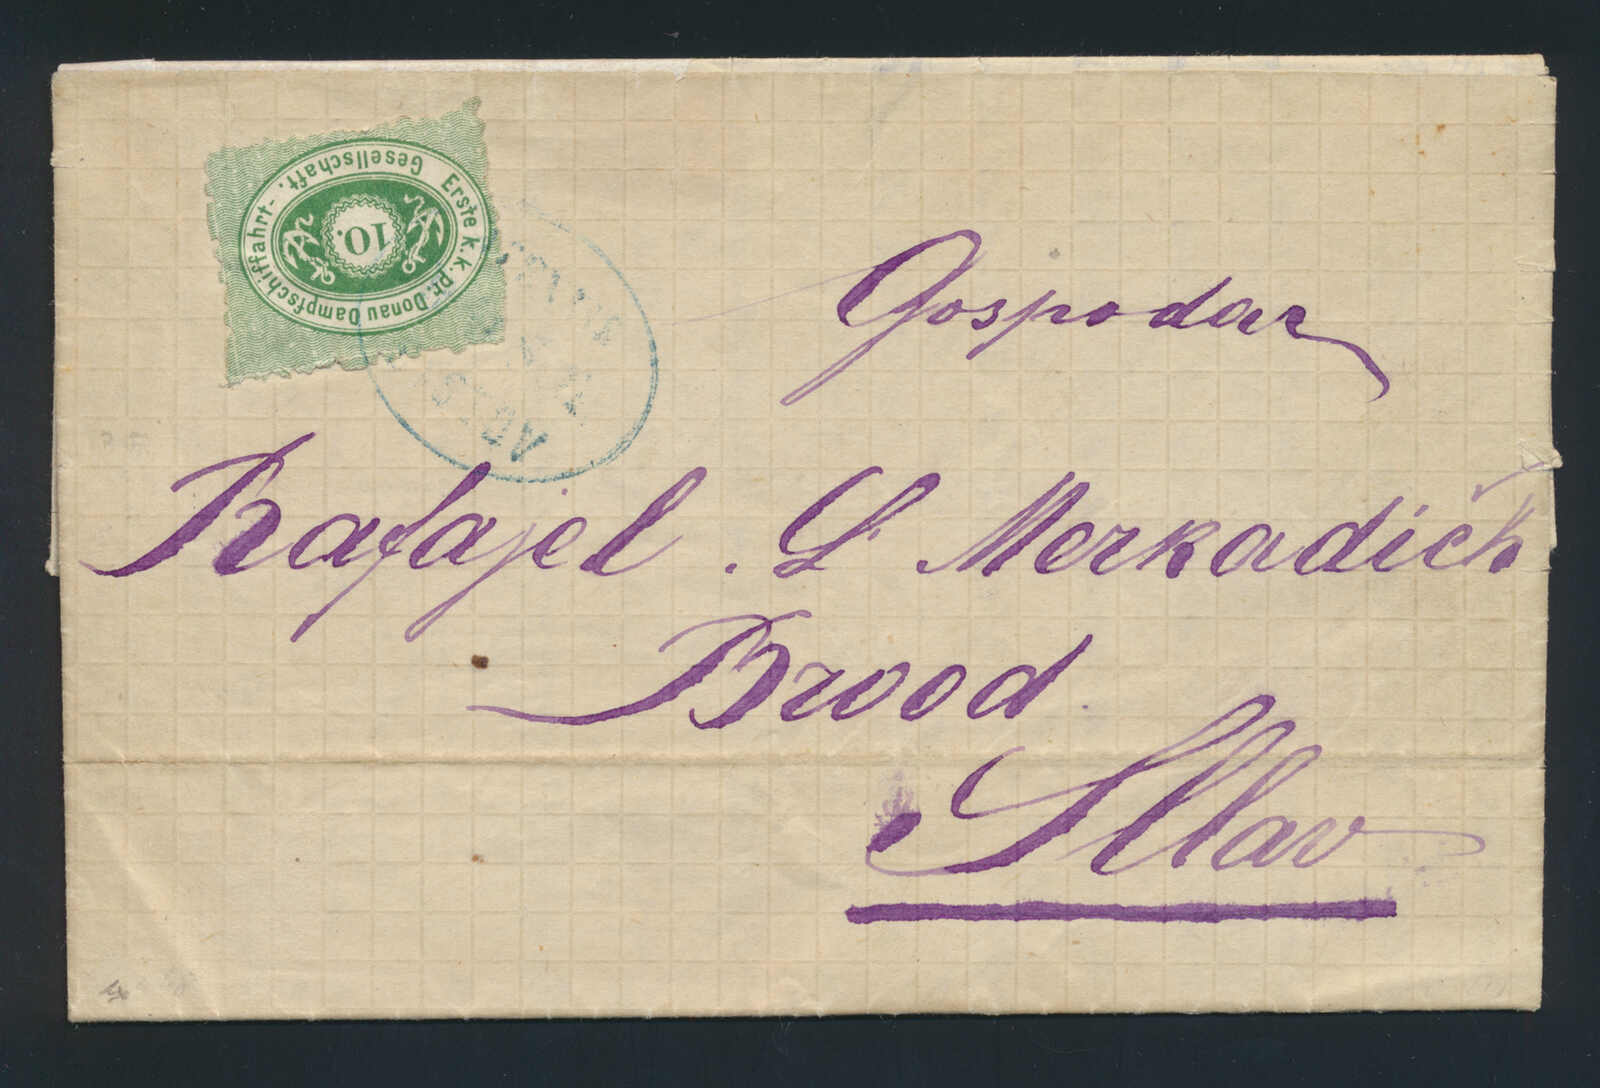 Erste k. k. pr. Donau Dampfschiffahrt-
Gesellschaft.
10.
Gospodar
Rafajel . S Merkadičh
Brood
Sllav